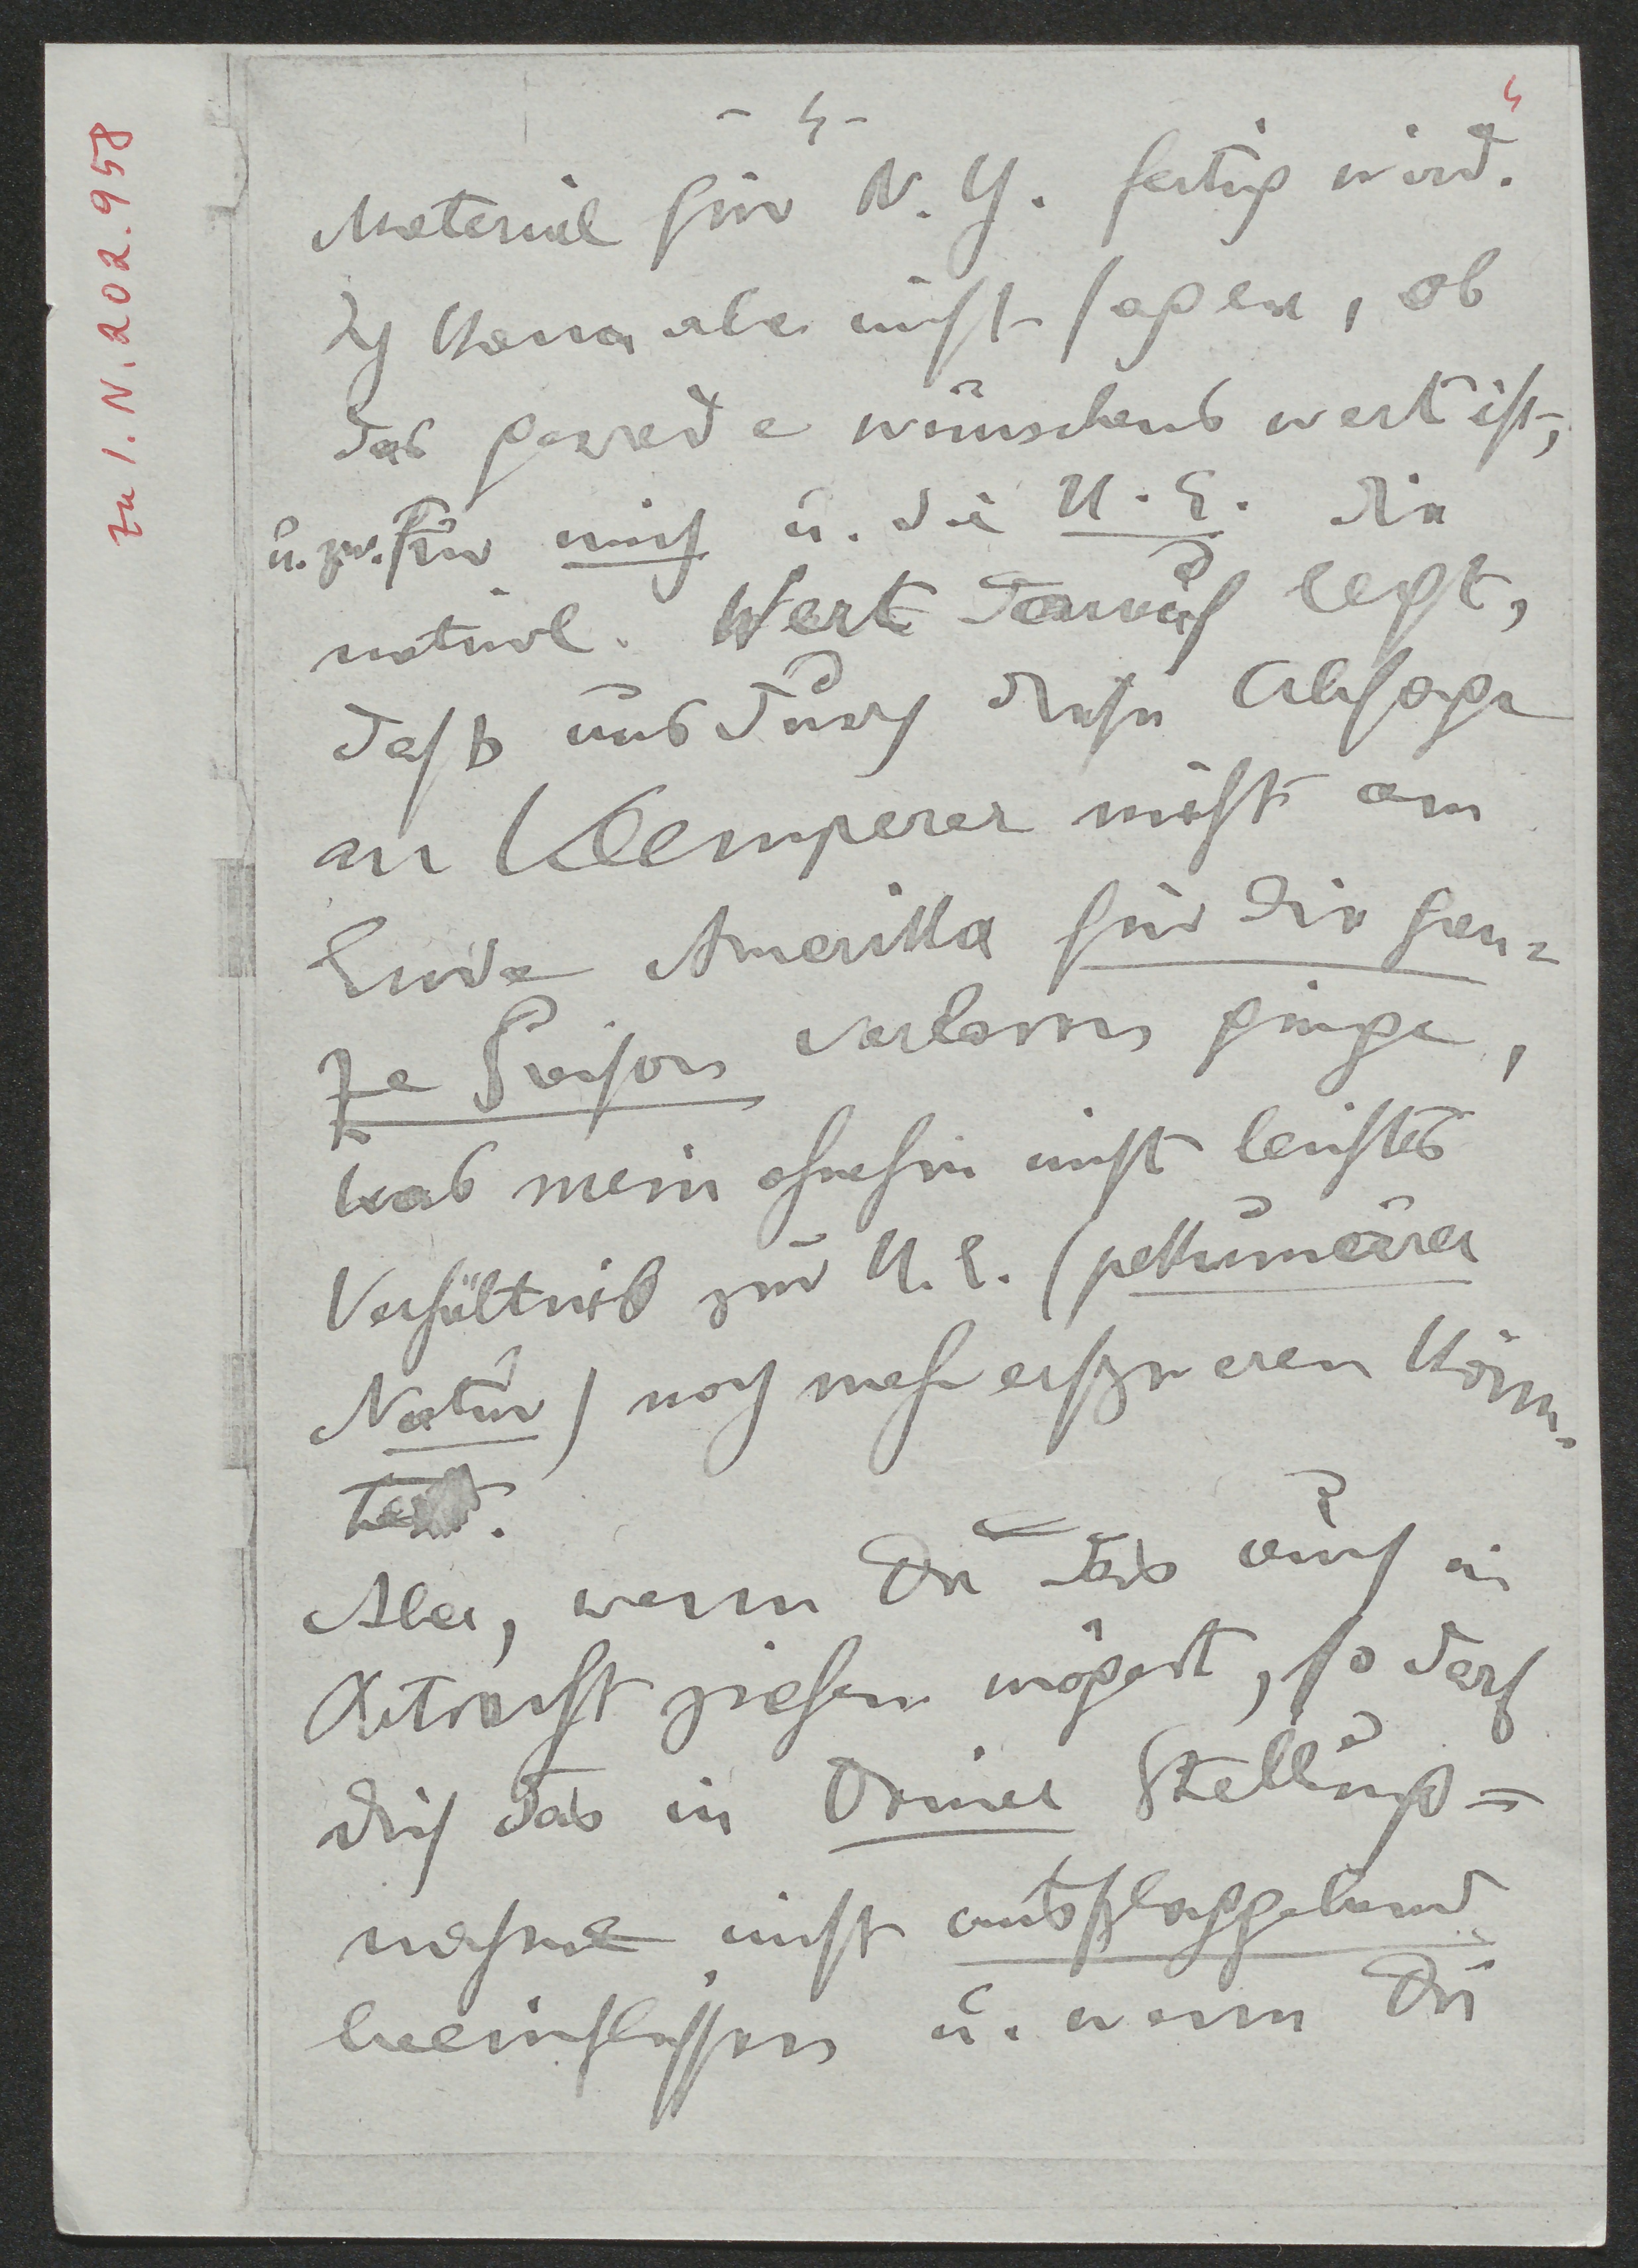 zu I.N. 202.958
4
- 4 -
Material für N. Y. fertig wird.
Ich kann aber nicht sagen, ob
das gerade wünschenswert ist,
u. zw. für mich u. die U. E. die
natürl. Wert darauf legt,
dass uns durch diese Absage
an Klemperer nicht am
Ende Amerika für die gan-
ze Saison verloren ginge,
was mein ohnehin nicht leichtes
Verhältnis zur U. E. (pekuniärer
Natur) noch mehr erschweren könn-
te.
Aber, wenn Du das auch in
Betracht ziehen mögest, so darf
Dich das in Deiner Stellung-
nahme nicht ausschlaggebend
beeinflussen u. wenn Du